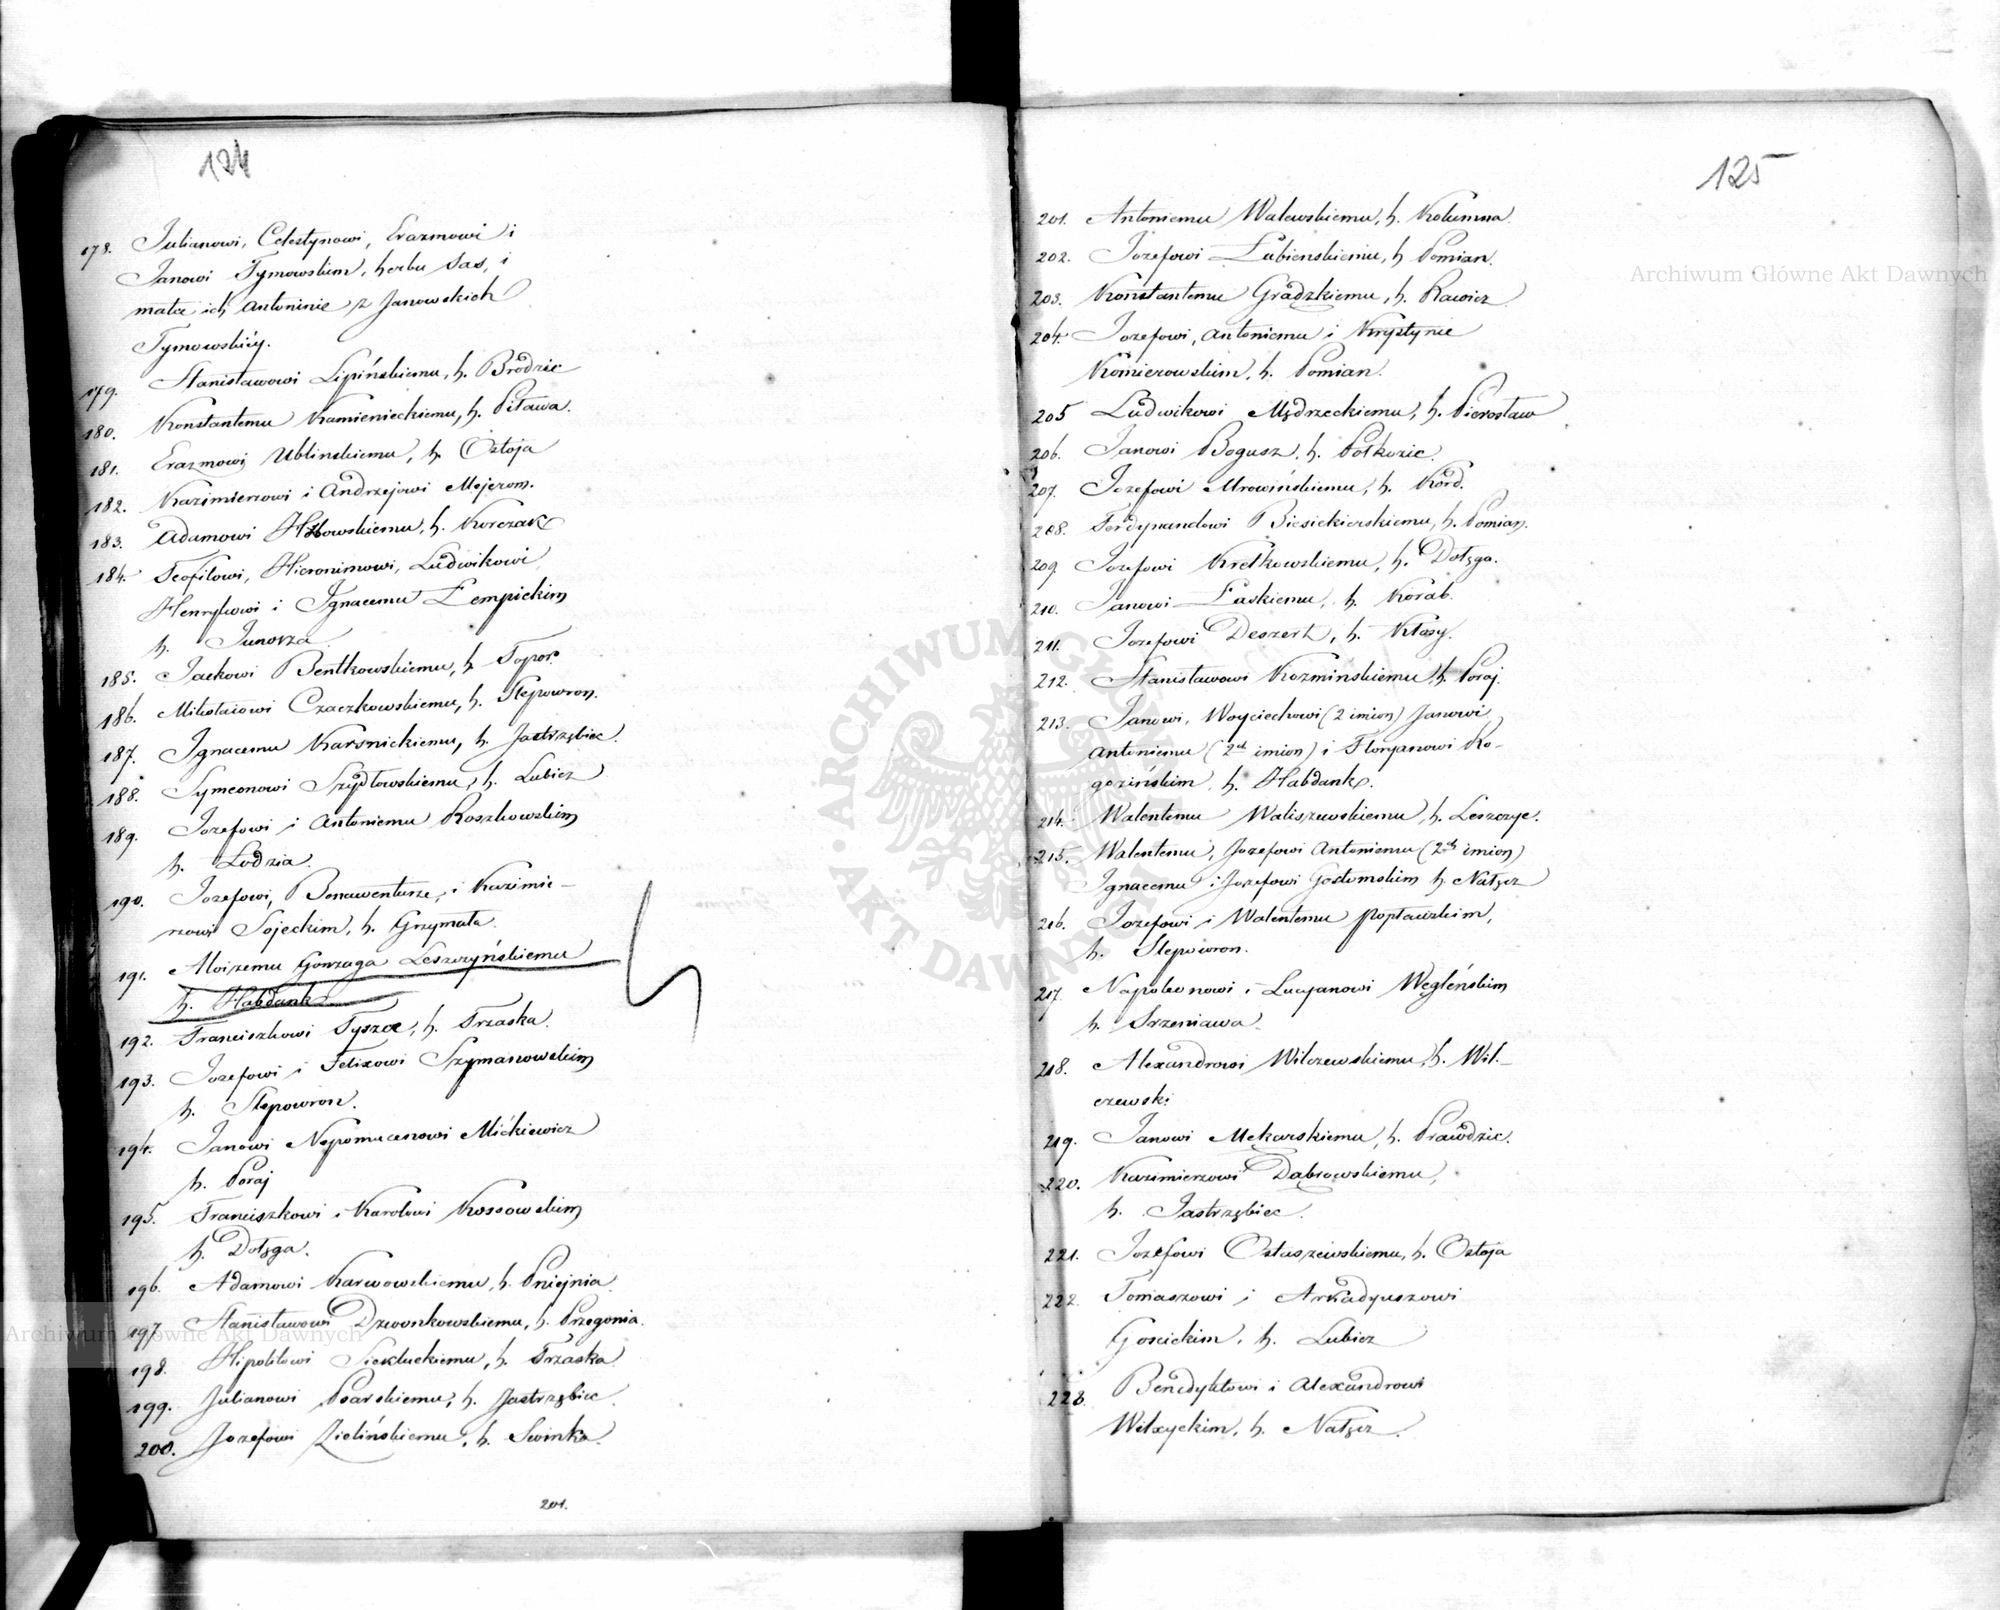 124
178. Julianowi, Celestynowi, Erazmowi i
Janowi Tymowskim, herbu Sas, i
matce ich Antoninie z Janowskich
Tymowskiéy.
179. Stanisławowi Lipińskiemu, h. Brodzic
180. Konstantemu Kamienieckiemu, h. Piława.
181. Erazmowi Ublinskiemu, h. Ostoja
182. Kazimierzowi i Andrzejowi Mejerom.
183. Adamowi śkiemu, h. Korczak
184. Teofilowi, Hieronimowi, Ludwikowi,
Henrykowi i Ignacemu Łempickim
h. Junosza
185. Jackowi Bentkowskiemu, h. Topor.
186. Mikołaiowi Czaczkowskiemu, h. Slepowron.
187. Ignacemu Karsnickiemu, h. Jastrzębiec.
188. Symeonowi Szydłowskiemu, h. Lubicz
189. Jozefowi i Antoniemu Roszkowskim
h. Lodzia.
190. Jozefowi, Bonawenturze, i Kazimie-
rzowi Sojeckim, h. Grzymała.
191. Aloizemu Gonzaga Leszczyńskiemu
h. Habdank
192. Franciszkowi Tysza, h. Trzaska.
193. Jozefowi i Felixowi Szymanowskim
h. Slepowron.
194. Janowi Nepomucenowi Mickiewicz
h. Poraj
195. Franciszkowi i Karolowi Kossowskim
h. Dołęga.
196. Adamowi Karwowskiemu, h. Pniejnia.
197. Stanisławowi Dzwonkowskiemu, h. Przegonia.
198. Hipolitowi Siekluckiemu, h. Trzaska.
199. Julianowi Psarskiemu, h. Jastrzębiec.
200. Jozefowi Zielińskiemu, h. Swinka.
201.
125
201. Antoniemu Walewskiemu, h. Kolumna.
202. Jozefowi Łubienskiemu, h Pomian.
203. Konstantemu Grądzkiemu, h. Rawicz
204. Jozefowi, Antoniemu i Krystynie
Komierowskim, h. Pomian.
205 Ludwikowi Mędrzeckiemu, h. Pierosław
206. Janowi Bogusz, h. Półkozic.
207. Jozefowi Mrowińskiemu, h. Kord.
208. Ferdynandowi Biesiekierskiemu, h. Pomian.
209 Jozefowi Kretkowskiemu, h. Dołęga.
210. Janowi Łaskiemu, h. Korab.
211. Jozefowi Deszert, h. Kłosy.
212. Stanisławowi Kozminskiemu, h. Poraj.
213. Janowi, Woyciechowi (2 imion) Janowi
Antoniemu (2ch imion) i Floryanowi Ro-
gozińskim, h. Habdank.
214. Walentemu Waliszewskiemu, h. Leszczyc.
215. Walentemu, Jozefowi Antoniemu (2ch imion)
Ignacemu i Jozefowi Gostomskim h Nałęcz
216. Jozefowi i Walentemu Popławskim,
h. Slepowron.
217. Napoleonowi i Lucyanowi Węgleńskim
h. Srzeniawa
218. Alexandrowi Wilczewskiemu, h. Wil-
czewski
219. Janowi Mękarskiemu, h. Prawdzic.
220. Kazimierzowi Dąbrowskiemu,
h. Jastrzębiec.
221. Jozefowi Ostaszewskiemu, h. Ostoja
222. Tomaszowi i Arkadyuszowi
Goscickim, h. Lubicz
223. Benedyktowi i Alexandrowi
Wilxyckim, h. Nałęcz.
Archiwum Główne Akt Dawnych
Archiwum Główne Akt Dawnych
ARCHIWUM GŁÓWNE AKT DAWNYCH